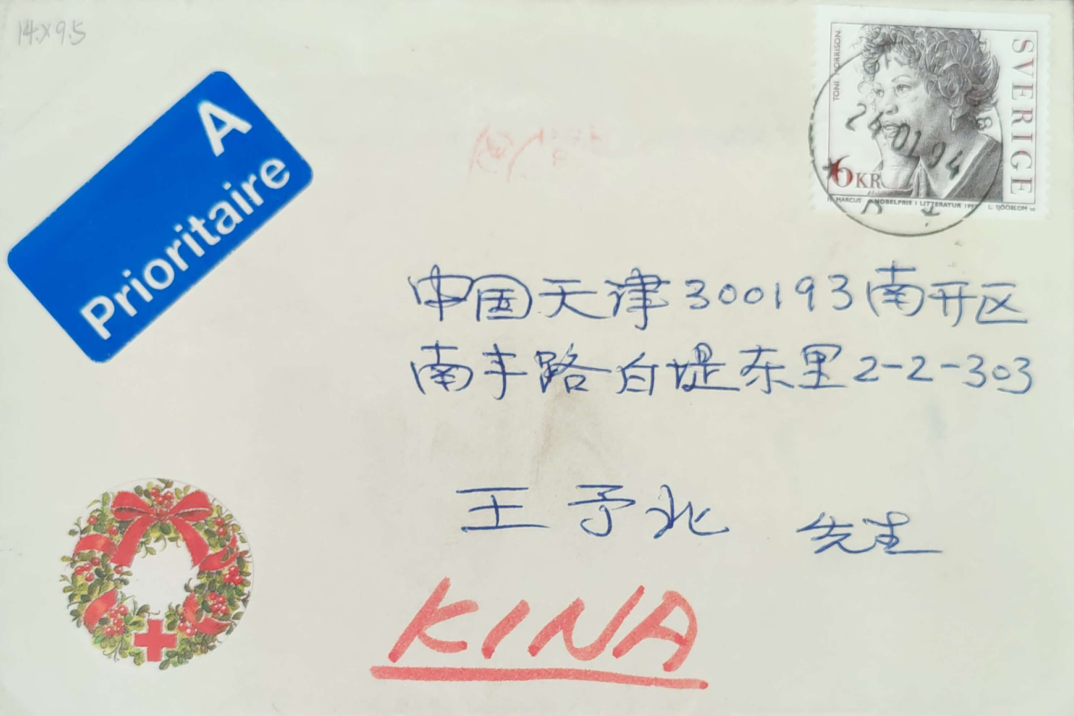 14×9.5
A
Prioritaire
TONI MORRISON
SVERIGE
24.01.94
6 KR
NOBELPRIS I LITTERATUR
L. SJÖÖBLOM
中国天津300193南开区
南丰路白堤东里2-2-303
王予北 先生
KINA